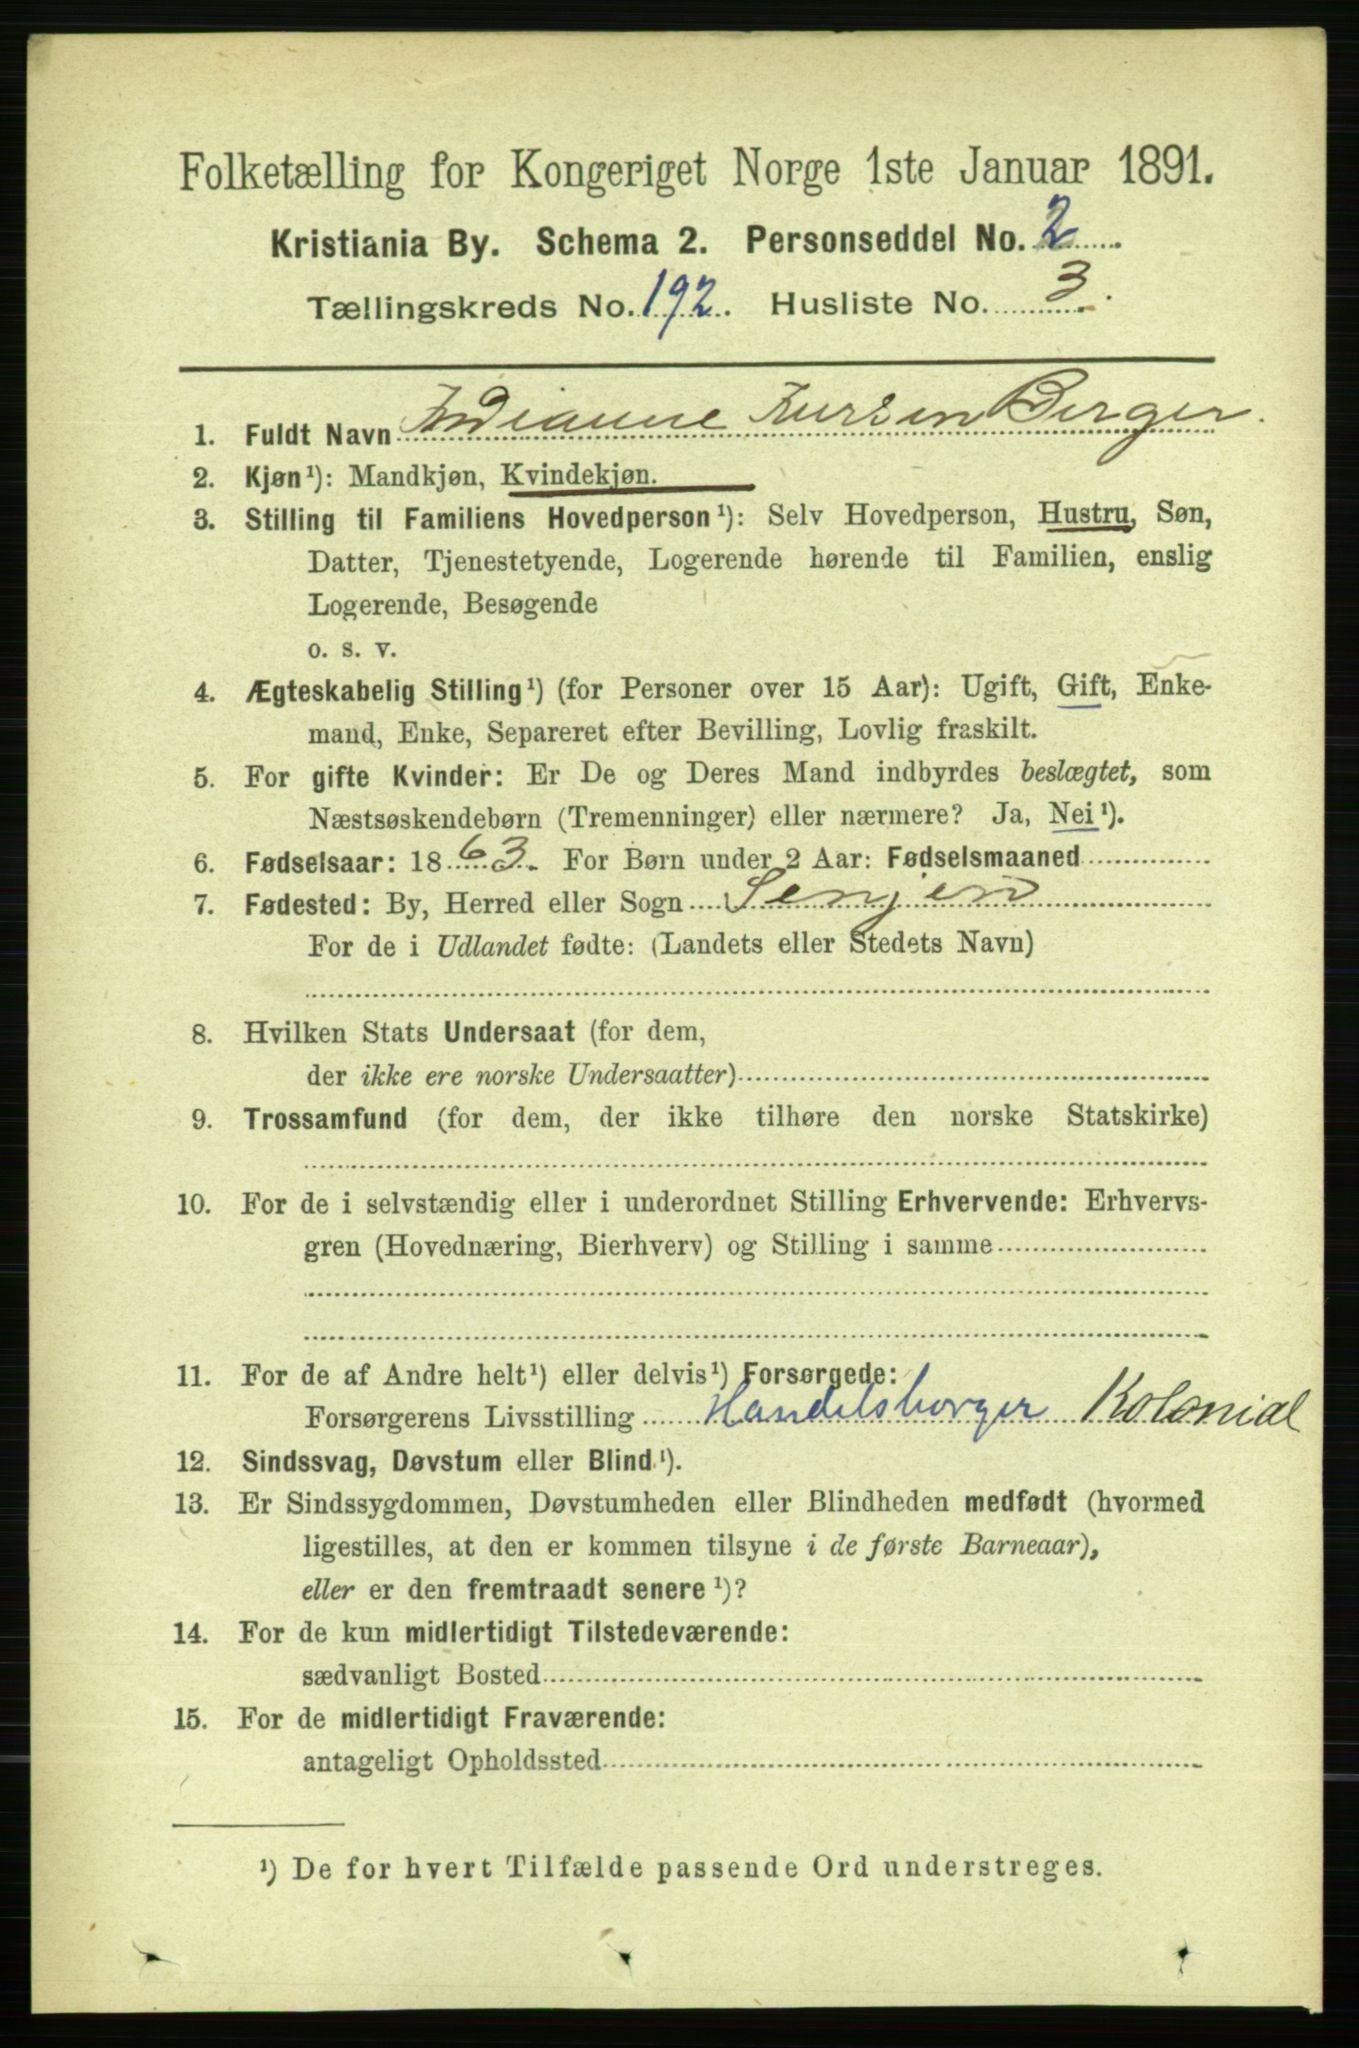 Folketælling for Kongeriget Norge 1ste Januar 1891.
Kristiania By. Schema 2. Personseddel No. 2
Tællingskreds No. 192. Husliste No. 3.
1. Fuldt Navn Berger.
2. Kjøn¹): Mandkjøn, Kvindekjøn.
3. Stilling til Familiens Hovedperson¹): Selv Hovedperson, Hustru, Søn,
Datter, Tjenestetyende, Logerende hørende til Familien, enslig
Logerende, Besøgende
o. s. v.
4. Ægteskabelig Stilling¹) (for Personer over 15 Aar): Ugift, Gift, Enke-
mand, Enke, Separeret efter Bevilling, Lovlig fraskilt.
5. For gifte Kvinder: Er De og Deres Mand indbyrdes beslægtet, som
Næstsøskendebørn (Tremenninger) eller nærmere? Ja, Nei¹).
6. Fødselsaar: 1863. For Børn under 2 Aar: Fødselsmaaned
7. Fødested: By, Herred eller Sogn Senjen
For de i Udlandet fødte: (Landets eller Stedets Navn)
8. Hvilken Stats Undersaat (for dem,
der ikke ere norske Undersaatter)
9. Trossamfund (for dem, der ikke tilhøre den norske Statskirke)
10. For de i selvstændig eller i underordnet Stilling Erhvervende: Erhvervs-
gren (Hovednæring, Bierhverv) og Stilling i samme
11. For de af Andre helt¹) eller delvis¹) Forsørgede:
Forsørgerens Livsstilling Handelsborger Kolonial
12. Sindssvag, Døvstum eller Blind¹).
13. Er Sindssygdommen, Døvstumheden eller Blindheden medfødt (hvormed
ligestilles, at den er kommen tilsyne i de første Barneaar),
eller er den fremtraadt senere¹)?
14. For de kun midlertidigt Tilstedeværende:
sædvanligt Bosted
15. For de midlertidigt Fraværende:
antageligt Opholdssted
¹) De for hvert Tilfælde passende Ord understreges.